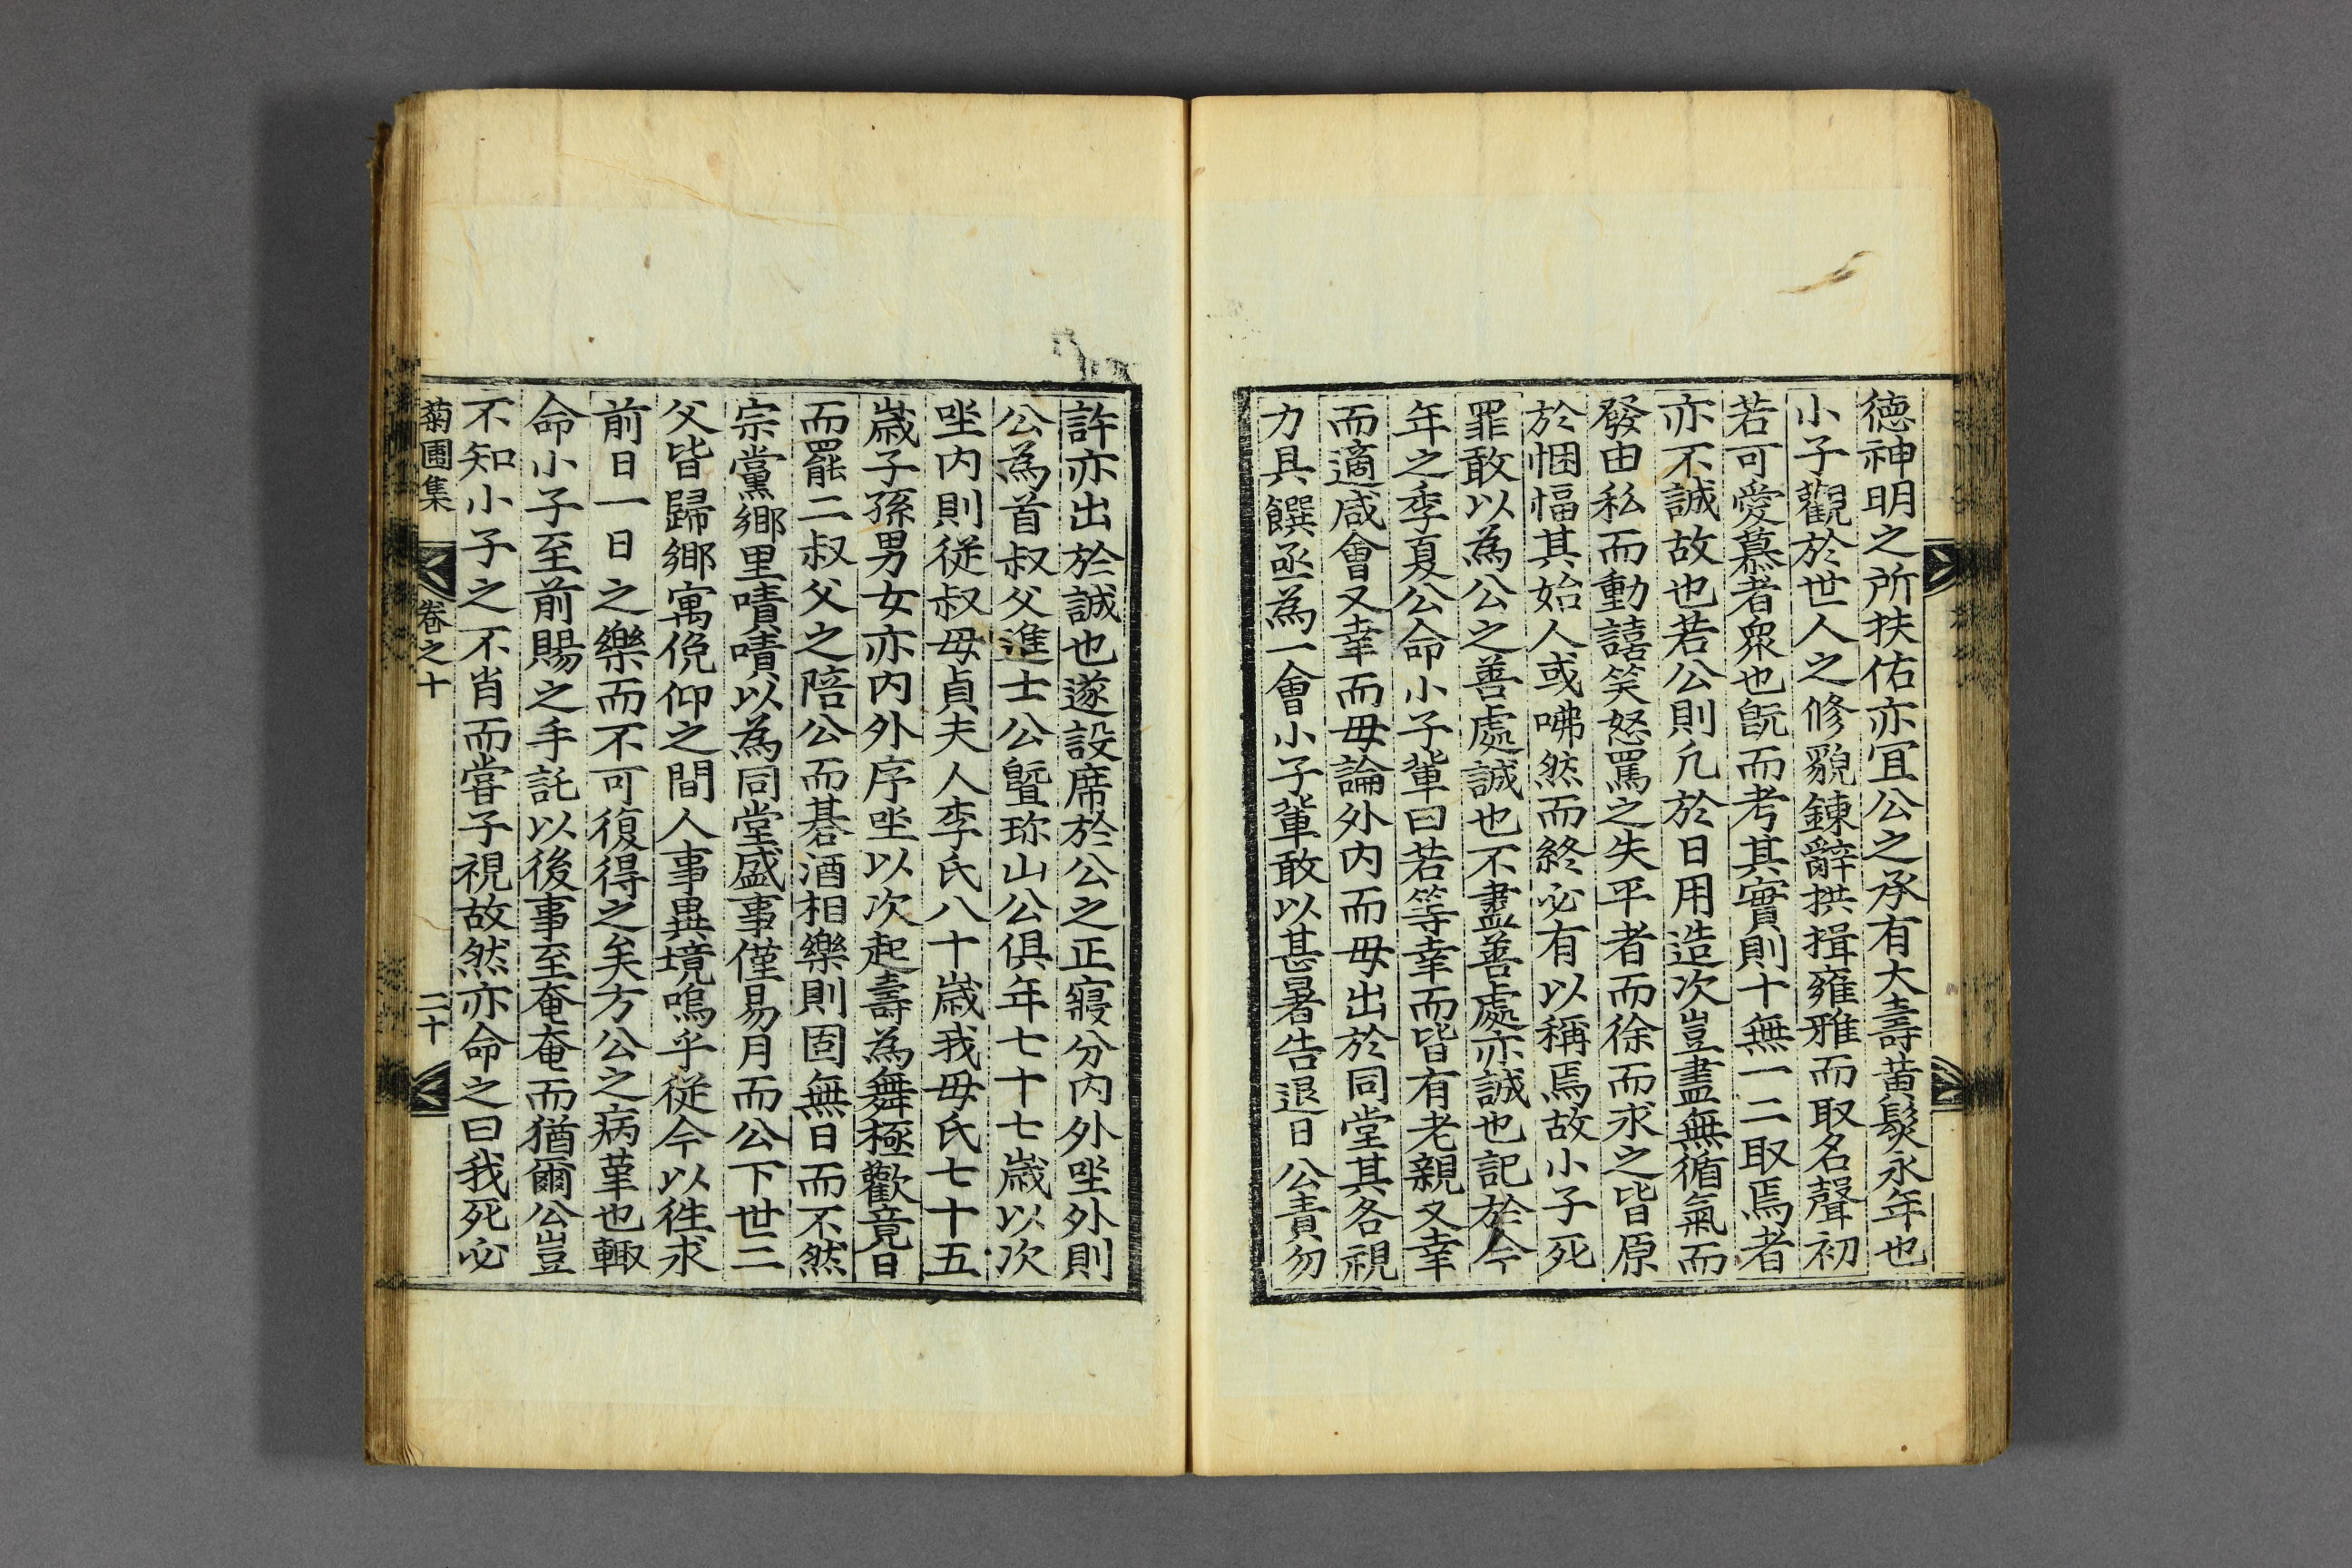 德神明之所扶佑亦宜公之承有大壽黃髮永年也
小子觀於世人之修貌鍊辭拱揖雍雅而取名聲初
若可愛慕者衆也旣而考其實則十無一二取焉者
亦不誠故也若公則凡於日用造次豈盡無循氣而
發由私而動譆笑怒罵之失平者而徐而求之皆原
於悃愊其始人或咈然而終必有以稱焉故小子死
罪敢以為公之善處誠也不盡善處亦誠也記於今
年之季夏公命小子軰曰若等幸而皆有老親又幸
而適咸會又幸而毋論外內而毋出於同堂其各視
力具饌亟為一會小子軰敢以甚暑告退日公責勿
許亦出於誠也遂設席於公之正寢分內外坐外則
公為首叔父進士公曁珎山公俱年七十七歲以次
坐內則従叔母貞夫人李氏八十歲我母氏七十五
歲子孫男女亦內外序坐以次起壽為舞極歡竟日
而罷二叔父之陪公而碁酒相樂則固無日而不然
宗黨鄉里嘖嘖以為同堂盛事僅易月而公下世二
父皆歸鄉寓俛仰之間人事異境嗚乎從今以徃求
前日一日之樂而不可復得之矣方公之病革也輙
命小子至前賜之手託以後事至奄奄而猶爾公豈
不知小子之不肖而嘗子視故然亦命之曰我死必
菊圃集
卷之十
二十